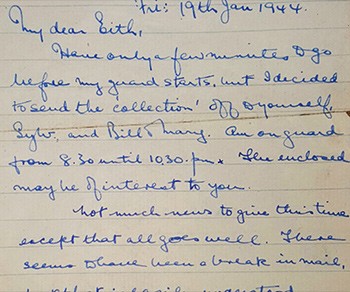 Fri: 19th Jan 1944.
My dear Eith,
Have only a few minutes to go
before my guard starts, but I decided
to send the 'collection' off to yourself,
Sylv, and Bill & Mary. Am on guard
from 8.30 until 10.30. p.m. The enclosed
may be of interest to you.
Not much news to give this time
except that all goes well. There
seems to have been a break in mail,